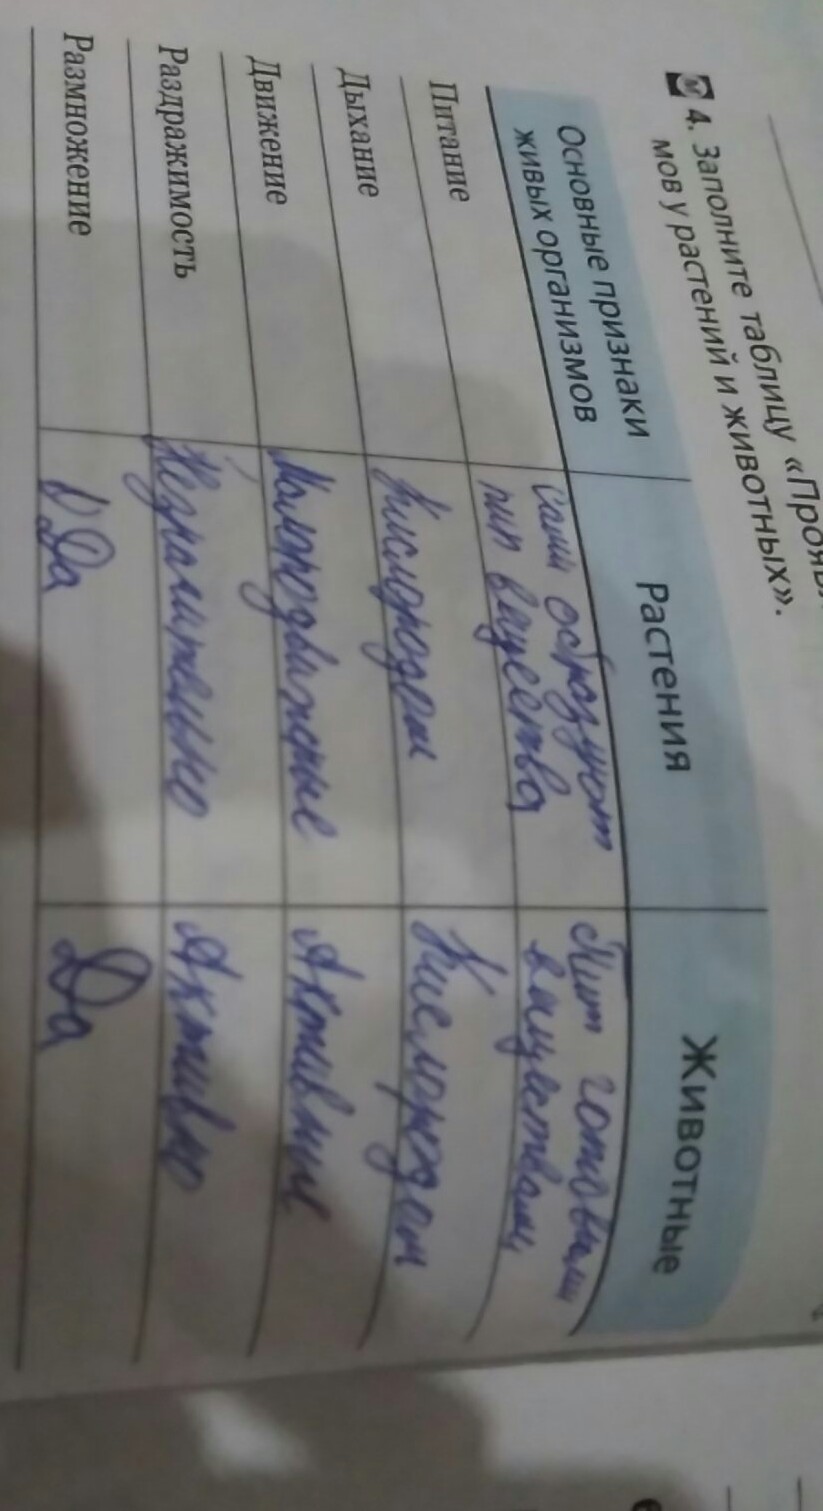 4. Заполните таблицу «Прояв
мов у растений и животных».
Основные признаки
живых организмов
Растения
Животные
Питание
сами образуют
пит вещества
Пит готовыми
веществами
Дыхание
Кислородом
Кислородом
Движение
Малоподвижные
Активные
Раздражимость
Незначительно
Активно
Размножение
Да
Да